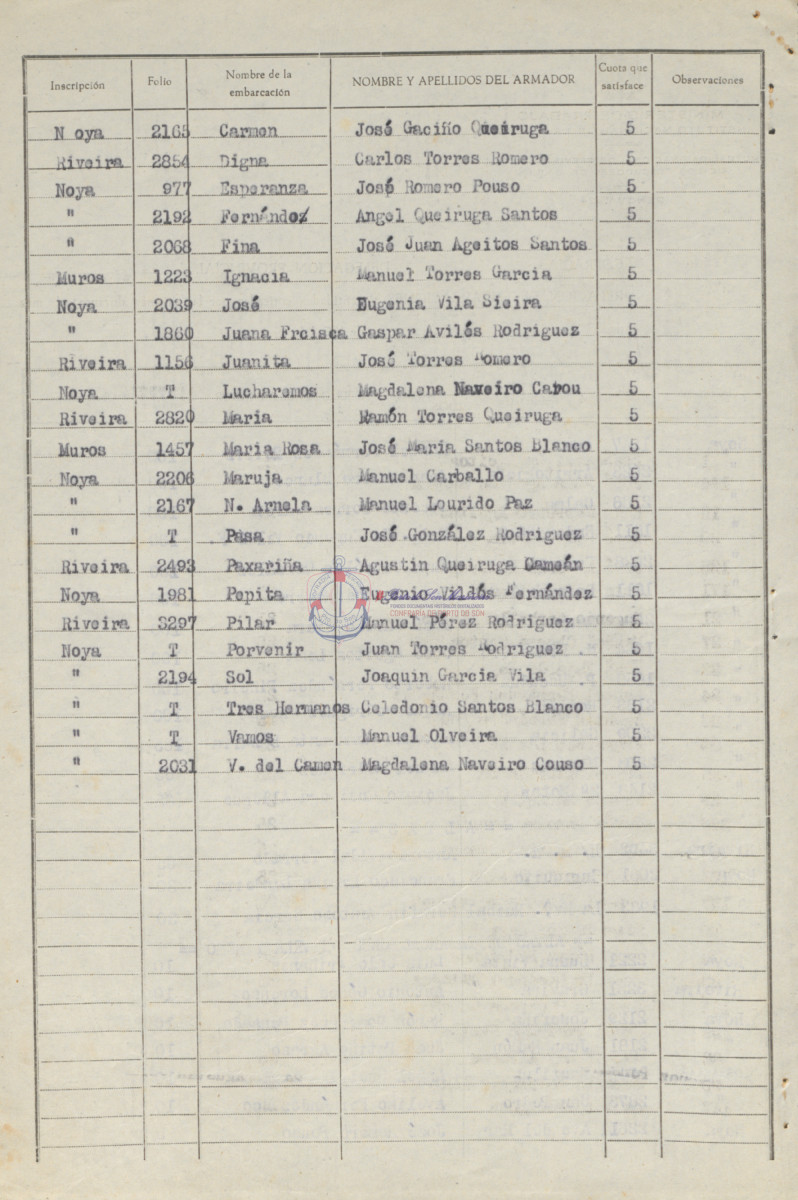 Inscripción Folio Nombre de la embarcación NOMBRE Y APELLIDOS DEL ARMADOR Cuota que satisface Observaciones
N oya 2165 Carmen José Gaciño Queiruga 5
Riveira 2854 Digna Carlos Torres Romero 5
Noya 977 Esperanza José Romero Pouso 5
" 2192 Fernández Angel Queiruga Santos 5
" 2068 Fina José Juan Ageitos Santos 5
Muros 1223 Ignacia Manuel Torres Garcia 5
Noya 2039 José Eugenia Vila Sieira 5
" 1860 Juana Frcisca Gaspar Avilés Rodriguez 5
Riveira 1156 Juanita José Torres Romero 5
Noya T Lucharemos Magdalena Naveiro Cabou 5
Riveira 2820 Maria Ramón Torres Queiruga 5
Muros 1457 Maria Rosa José Maria Santos Blanco 5
Noya 2206 Maruja Manuel Carballo 5
" 2167 N. Arnela Manuel Lourido Paz 5
" T Pasa José González Rodriguez 5
Riveira 2493 Paxariña Agustin Queiruga Cameán 5
Noya 1981 Pepita Eugenio Vildés Fernández 5
Riveira 3297 Pilar Manuel Pérez Rodriguez 5
Noya T Porvenir Juan Torres Rodriguez 5
" 2194 Sol Joaquin Garcia Vila 5
" T Tres Hermanos Celedonio Santos Blanco 5
" T Vamos Manuel Olveira 5
" 2031 V. del Camen Magdalena Naveiro Couso 5